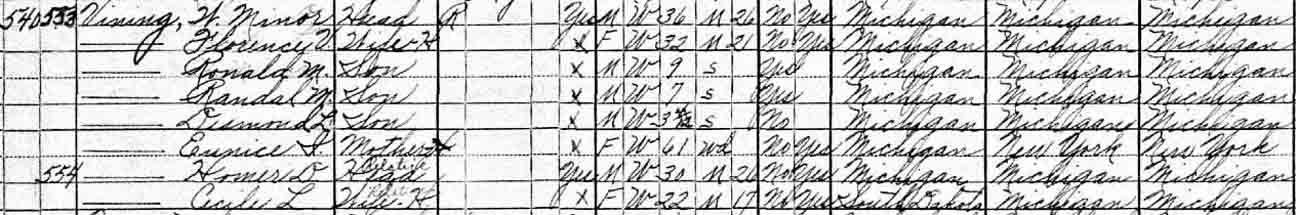 540 553 Vining, W. Minor Head R Yes M W 36 M 26 No Yes Michigan Michigan Michigan
Florency V. Wife-H X F W 32 M 21 No Yes Michigan Michigan Michigan
Ronald M. Son X M W 9 S Yes Michigan Michigan Michigan
Randal M. Son X M W 7 S Yes Michigan Michigan Michigan
Desmond L. Son X M W 3 S No Michigan Michigan Michigan
Eunice I Mother X F W 61 Wd No Yes Michigan New York New York
554 Homer D Head Yes M W 30 M 26 No Yes Michigan Michigan Michigan
Cecile L Wife-H X F W 22 M 17 No Yes South Dakota Michigan Michigan